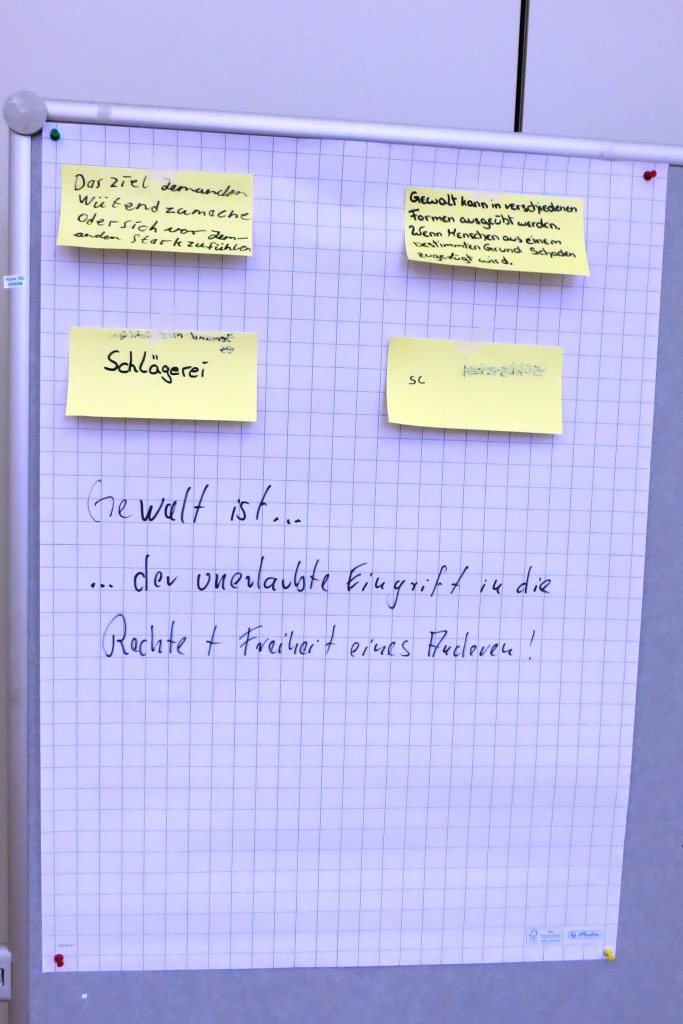 Das Ziel Jemanden
Wütend zumache
Oder sich vor Jem-
anden Stark zufühlen
Gewalt kann in verschiedenen
Formen ausgeübt werden.
Wenn Menschen aus einem
bestimmten Grund Schaden
zugefügt wird.
Schlägerei
sc
Gewalt ist...
... der unerlaubte Eingriff in die
Rechte + Freiheit eines Anderen!